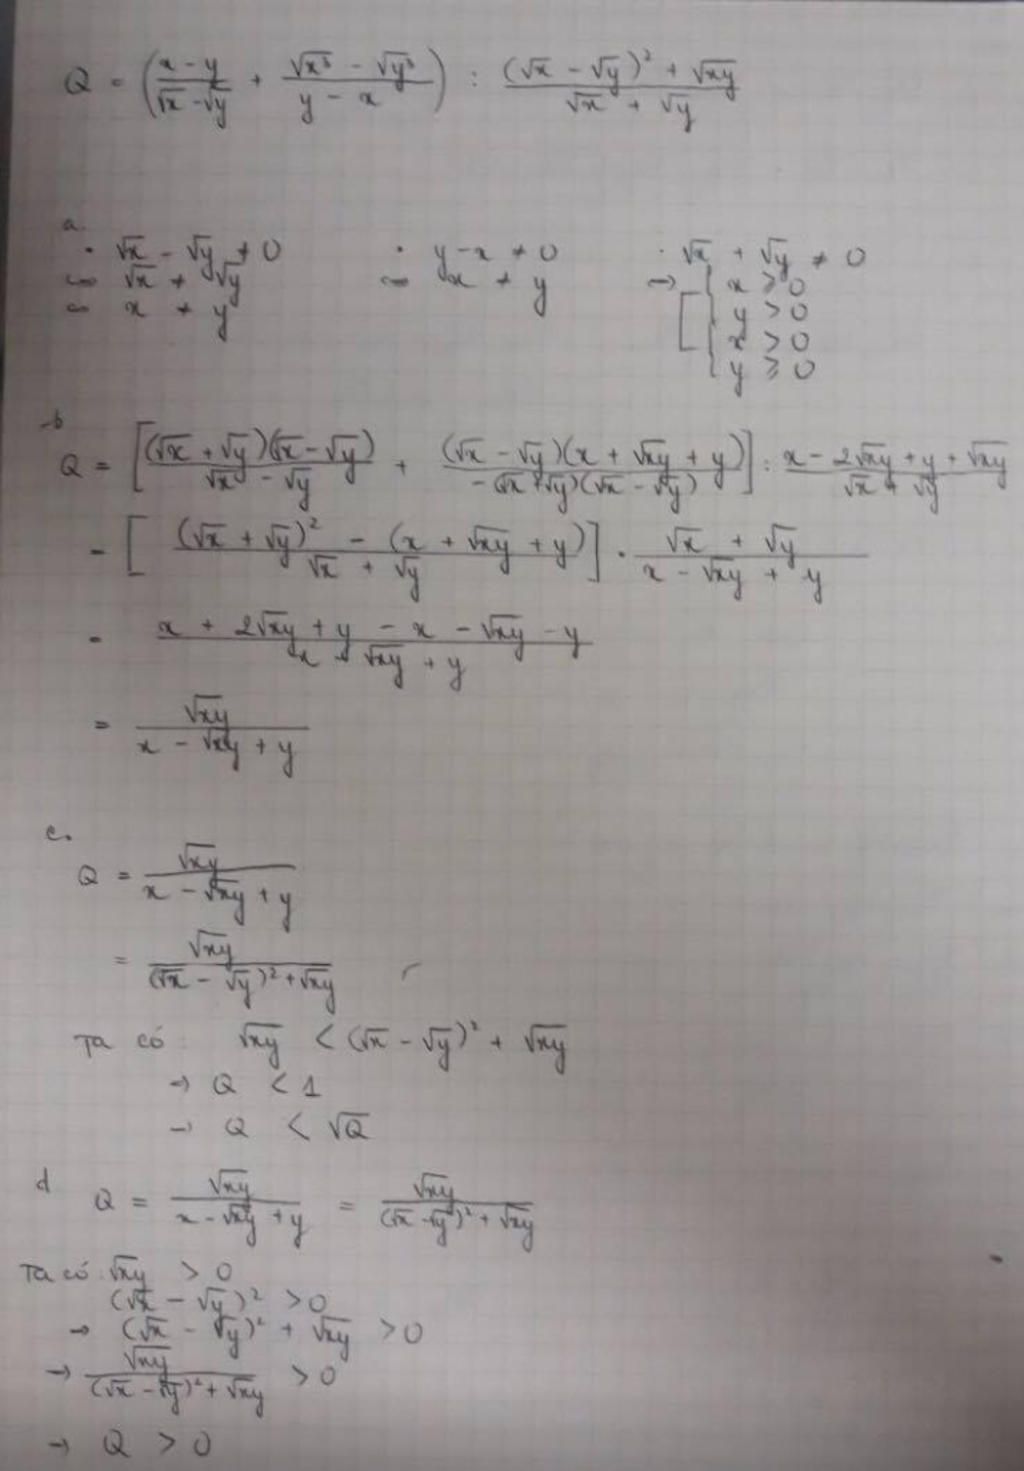 Q = ( (x - y)/(√x - √y) + (√x³ - √y³)/(y - x) ) : ((√x - √y)² + √xy)/(√x + √y)
a.
• √x - √y ≠ 0 • y - x ≠ 0 • √x + √y ≠ 0
⇔ √x ≠ √y ⇔ x ≠ y → [ { x ≥ 0
⇔ x ≠ y y > 0
{ x > 0
y ≥ 0
b
Q = [ ((√x + √y)(√x - √y))/(√x - √y) + ((√x - √y)(x + √xy + y))/(-(√x + √y)(√x - √y)) ] : (x - 2√xy + y + √xy)/(√x + √y)
= [ ((√x + √y)² - (x + √xy + y))/(√x + √y) ] . (√x + √y)/(x - √xy + y)
= (x + 2√xy + y - x - √xy - y)/(x - √xy + y)
= √xy/(x - √xy + y)
c.
Q = √xy/(x - √xy + y)
= √xy/((√x - √y)² + √xy)
Ta có: √xy < (√x - √y)² + √xy
→ Q < 1
→ Q < √Q
d Q = √xy/(x - √xy + y) = √xy/((√x - √y)² + √xy)
Ta có: √xy > 0
(√x - √y)² > 0
→ (√x - √y)² + √xy > 0
→ √xy/((√x - √y)² + √xy) > 0
→ Q > 0